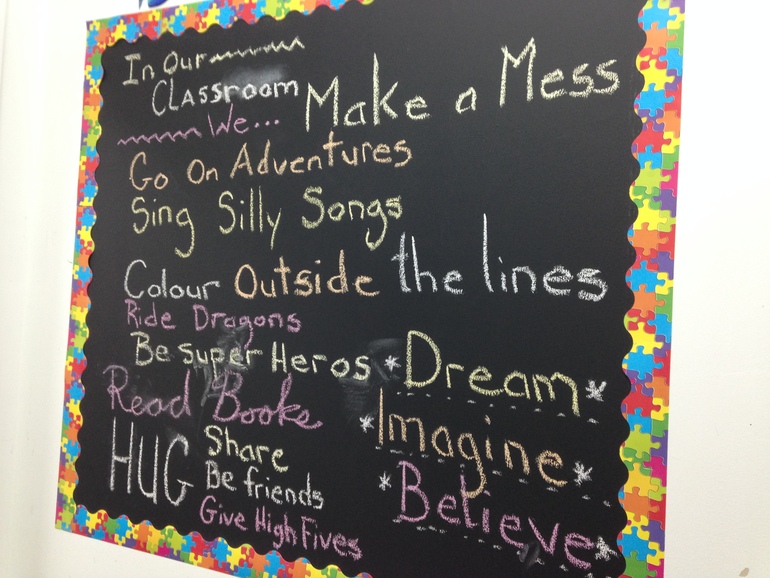 In Our
Classroom
We...
Make a Mess
Go On Adventures
Sing Silly Songs
Colour Outside the lines
Ride Dragons
Be super Heros
Read Books
HUG
Share
Be friends
Give High Fives
*Dream*
*Imagine*
*Believe*